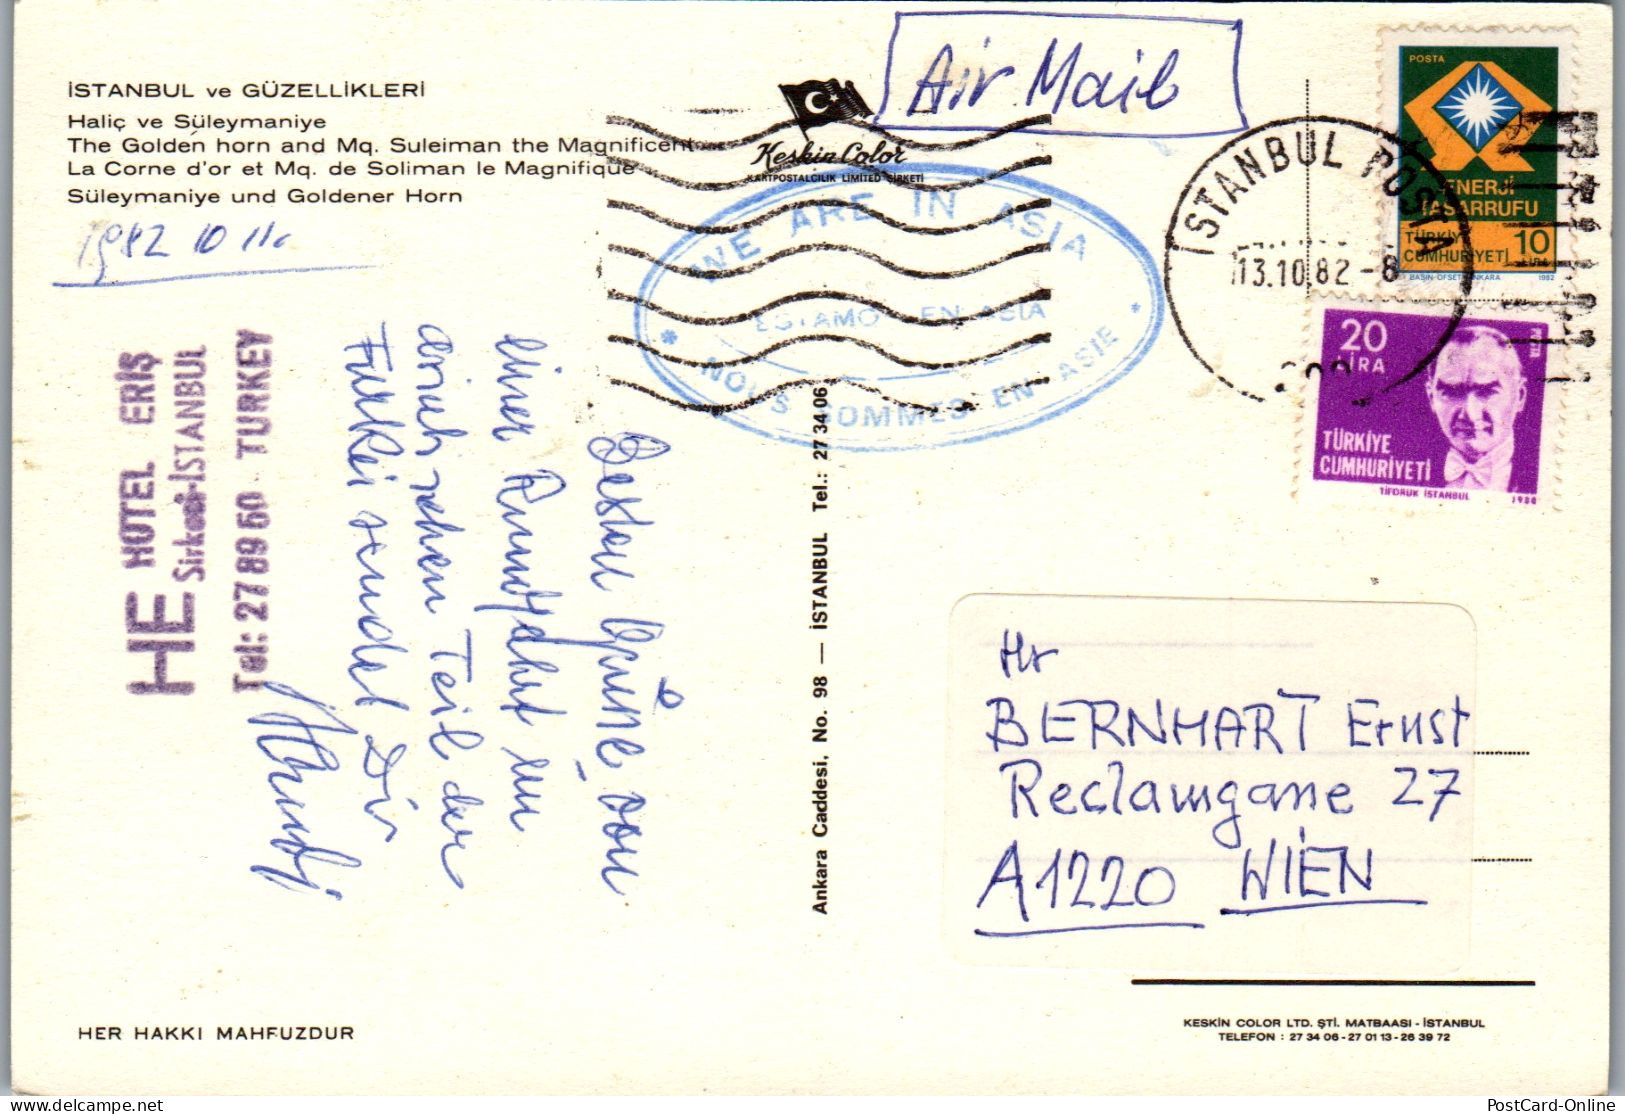 İSTANBUL ve GÜZELLİKLERİ
Haliç ve Süleymaniye
The Golden horn and Mq. Suleiman the Magnificent
La Corne d'or et Mq. de Soliman le Magnifique
Süleymaniye und Goldener Horn
1982 10 11.
Air Mail
Keskin Color
KARTPOSTALCILIK LIMITED ŞİRKETİ
WE ARE IN ASIA
ESTAMOS EN ASIA
NOUS SOMMES EN ASIE
İSTANBUL POSTA
13.10.82-8
POSTA
ENERJİ
TASARRUFU
TÜRKİYE
CUMHURİYETİ
10
LİRA
BASIN-OFSET-ANKARA 1982
20
LİRA
POSTA
TÜRKİYE
CUMHURİYETİ
TİFDRUK İSTANBUL 1980
HE HOTEL ERİŞ
Sirkeci-İSTANBUL
Tel: 27 89 50 TURKEY
Besten von
einer Rundfahrt im
asiatischen Teil der
Türkei sendet Dir
Ankara Caddesi, No. 98 — İSTANBUL Tel.: 27 34 06
Hr
BERNHART Ernst
Reclamgasse 27
A1220 WIEN
HER HAKKI MAHFUZDUR
KESKİN COLOR LTD. ŞTİ. MATBAASI - İSTANBUL
TELEFON : 27 34 06 - 27 01 13 - 26 39 72
delcampe.net
PostCard-Online